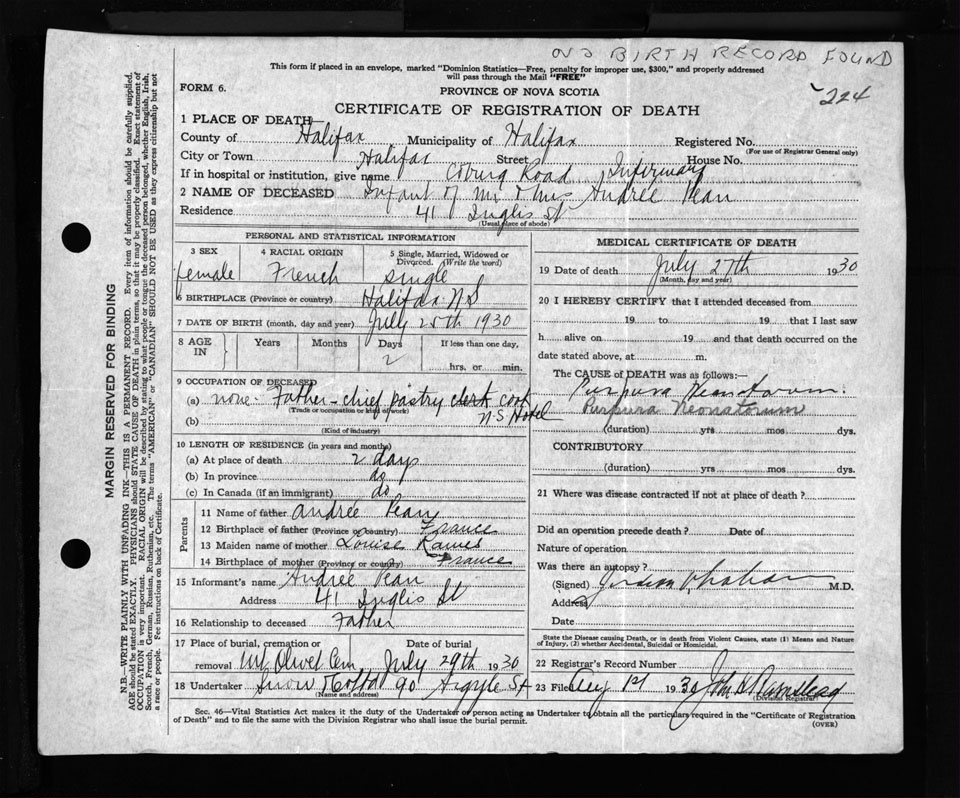 NO BIRTH RECORD FOUND
This form if placed in an envelope, marked "Dominion Statistics—Free, penalty for improper use, $300," and properly addressed
will pass through the Mail "FREE"
224
FORM 6.
PROVINCE OF NOVA SCOTIA
CERTIFICATE OF REGISTRATION OF DEATH
1 PLACE OF DEATH
County of Halifax Municipality of Halifax Registered No.
(For use of Registrar General only)
City or Town Halifax Street House No.
If in hospital or institution, give name Coburg Road Infirmary
2 NAME OF DECEASED Infant of Mr & Mrs Andreé Pean
Residence 41 Inglis St
(Usual place of abode)
PERSONAL AND STATISTICAL INFORMATION
3 SEX 4 RACIAL ORIGIN 5 Single, Married, Widowed or Divorced. (Write the word)
female French single
6 BIRTHPLACE (Province or country) Halifax N S
7 DATE OF BIRTH (month, day and year) July 25th 1930
8 AGE IN Years Months Days If less than one day,
2 hrs. or min.
9 OCCUPATION OF DECEASED
(a) none - Father - chief pastry clerk cook
(Trade or occupation or kind of work)
(b) N S Hotel
(Kind of industry)
10 LENGTH OF RESIDENCE (in years and months)
(a) At place of death 2 days
(b) In province do
(c) In Canada (if an immigrant) do
Parents
11 Name of father Andreé Pean
12 Birthplace of father (Province or country) France
13 Maiden name of mother Louise
14 Birthplace of mother (Province or country) France
15 Informant's name Andreé Pean
Address 41 Inglis St
16 Relationship to deceased Father
17 Place of burial, cremation or Date of burial
removal Mt Olivet Cem July 29th 1930
18 Undertaker Snow & Co Ltd 90 Argyle St
(Name and address)
MEDICAL CERTIFICATE OF DEATH
19 Date of death July 27th 1930
(Month, day and year)
20 I HEREBY CERTIFY that I attended deceased from
19 to 19 that I last saw
h alive on 19 and that death occurred on the
date stated above, at m.
The CAUSE OF DEATH was as follows:—
Purpura Neonatorum.
Purpura Neonatorum
(duration) yrs mos. dys.
CONTRIBUTORY
(duration) yrs mos. dys.
21 Where was disease contracted if not at place of death?
Did an operation precede death? Date of
Nature of operation
Was there an autopsy?
(Signed) M.D.
Address
Date
State the Disease causing Death, or in death from Violent Causes, state (1) Means and Nature
of Injury, (2) whether Accidental, Suicidal or Homicidal.
22 Registrar's Record Number
23 Filed Aug 1st 1930 John
Division Registrar
Sec. 46—Vital Statistics Act makes it the duty of the Undertaker or person acting as Undertaker to obtain all the particulars required in the "Certificate of Registration
of Death" and to file the same with the Division Registrar who shall issue the burial permit.
(OVER)
MARGIN RESERVED FOR BINDING
N.B.—WRITE PLAINLY WITH UNFADING INK—THIS IS A PERMANENT RECORD. Every item of information should be carefully supplied.
AGE should be stated EXACTLY. PHYSICIANS should STATE CAUSE OF DEATH in plain terms, so that it may be properly classified. Exact statement of
OCCUPATION is very important. RACIAL ORIGIN will be described by stating to what people or tongue the deceased person belonged, whether English, Irish,
Scotch, French, German, Russian, Ruthenian, etc. The terms "AMERICAN" or "CANADIAN" SHOULD NOT BE USED as they express citizenship but not
a race or people. See instructions on back of Certificate.